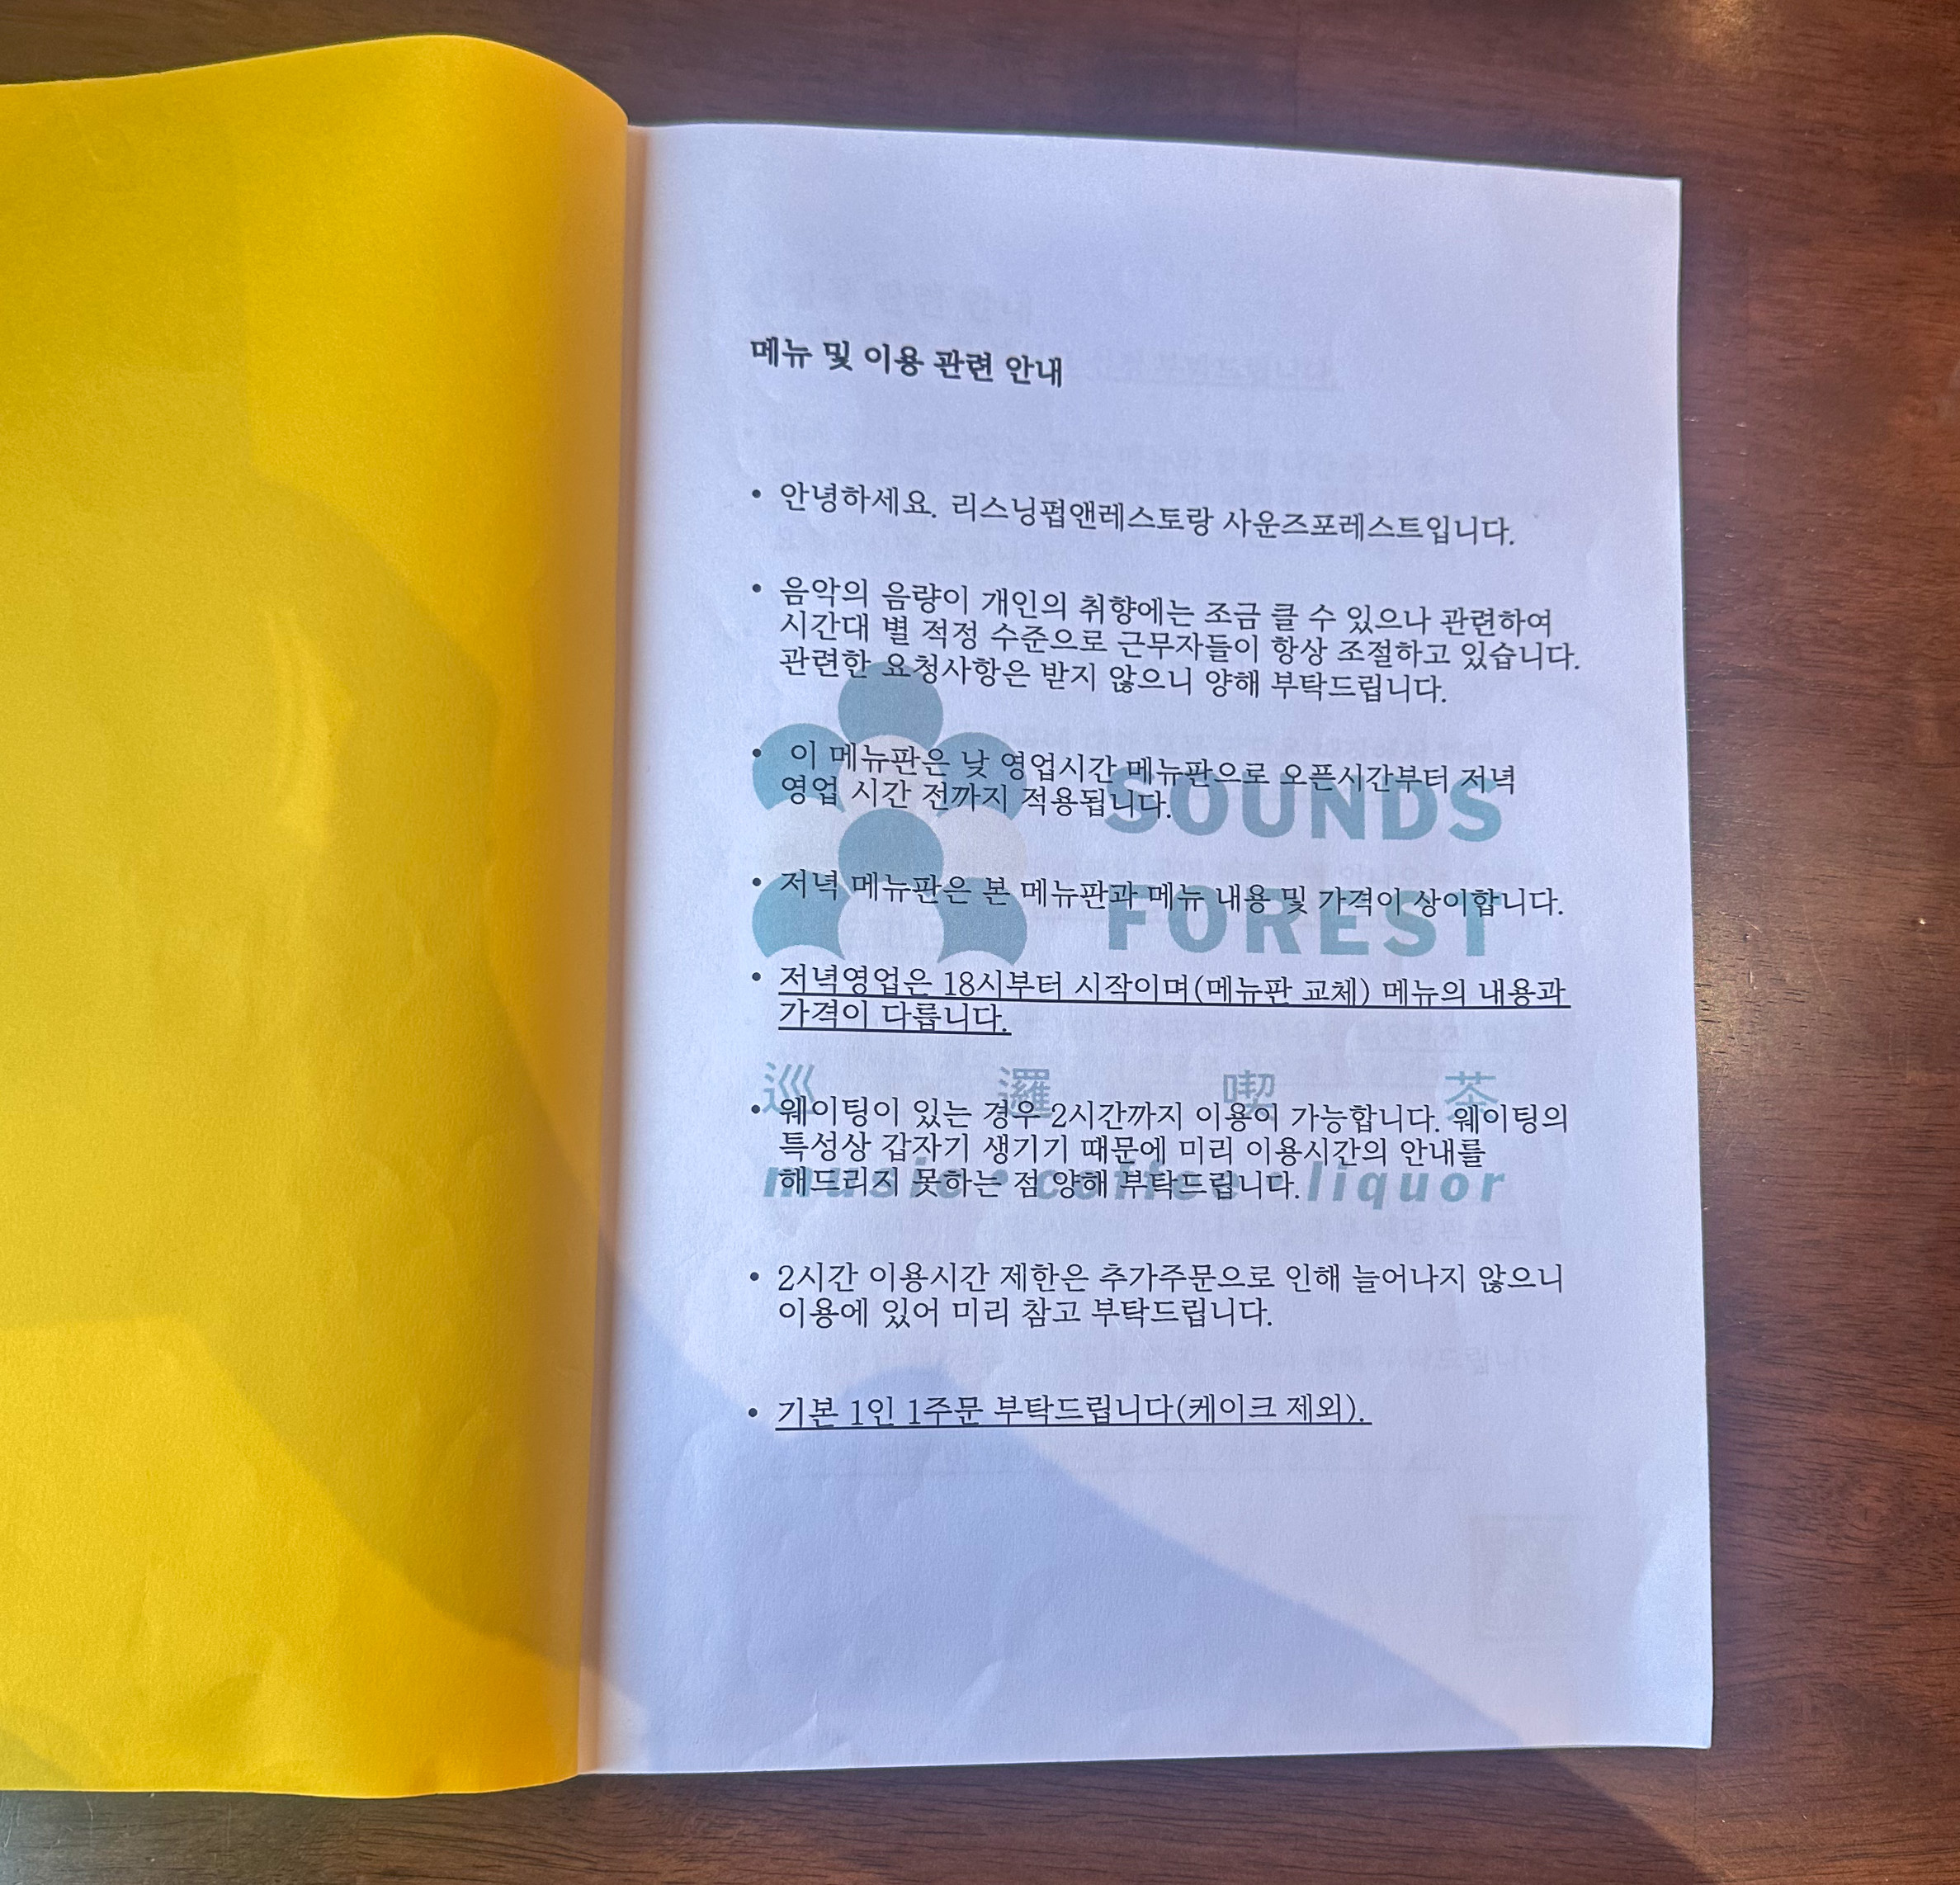 메뉴 및 이용 관련 안내
• 안녕하세요. 리스닝펍앤레스토랑 사운즈포레스트입니다.
• 음악의 음량이 개인의 취향에는 조금 클 수 있으나 관련하여
시간대 별 적정 수준으로 근무자들이 항상 조절하고 있습니다.
관련한 요청사항은 받지 않으니 양해 부탁드립니다.
• 이 메뉴판은 낮 영업시간 메뉴판으로 오픈시간부터 저녁
영업 시간 전까지 적용됩니다.
SOUNDS
• 저녁 메뉴판은 본 메뉴판과 메뉴 내용 및 가격이 상이합니다.
FOREST
• 저녁영업은 18시부터 시작이며(메뉴판 교체) 메뉴의 내용과
가격이 다릅니다.
巡 邏 喫 茶
• 웨이팅이 있는 경우 2시간까지 이용이 가능합니다. 웨이팅의
특성상 갑자기 생기기 때문에 미리 이용시간의 안내를
해드리지 못하는 점 양해 부탁드립니다.
music • coffee • liquor
• 2시간 이용시간 제한은 추가주문으로 인해 늘어나지 않으니
이용에 있어 미리 참고 부탁드립니다.
• 기본 1인 1주문 부탁드립니다(케이크 제외).